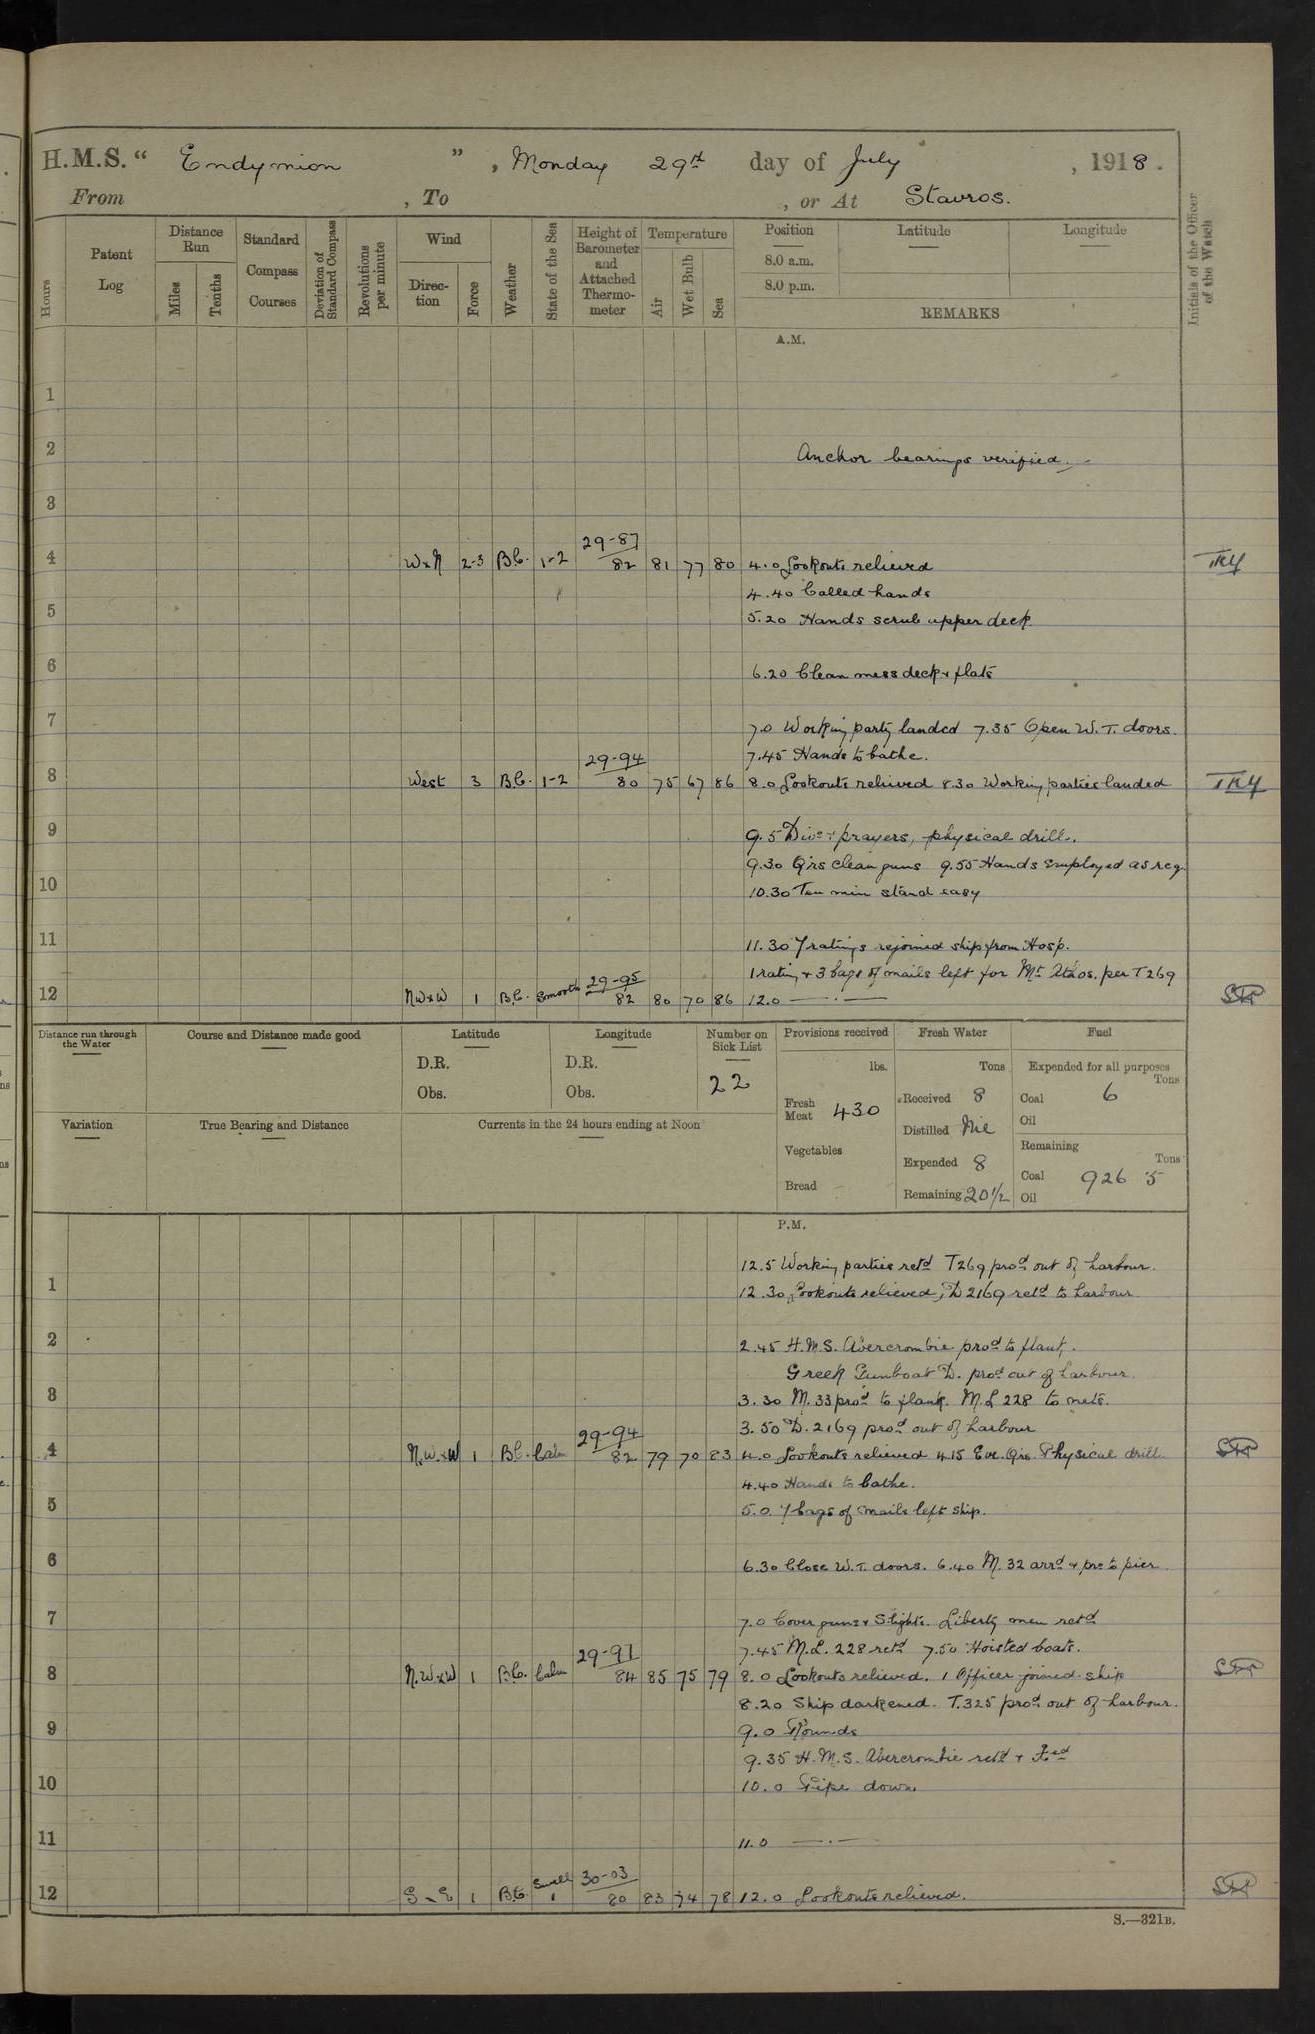 H.M.S. " Endymion ", Monday 29th day of July, 1918.
From , To , or At Stavros.
Hours
Patent Log
Distance Run
Miles
Tenths
Standard Compass Courses
Deviation of Standard Compass
Revolutions per minute
Wind
Direction
Force
Weather
State of the Sea
Height of Barometer and Attached Thermometer
Temperature
Air
Wet Bulb
Sea
Position
8.0 a.m.
8.0 p.m.
Latitude
Longitude
REMARKS
Initials of the Officer of the Watch
A.M.
1
2 Anchor bearings verified.
3
4 WxN 2-3 B.C. 1-2 29-87 82 81 77 80 4.0 Lookouts relieved
4.40 Called hands
5 5.20 Hands scrub upper deck
6 6.20 Clean mess deck & flats
7 7.0 Working party landed 7.35 Open W.T. doors.
7.45 Hands to bathe.
8 West 3 B.C. 1-2 29-94 80 75 67 86 8.0 Lookouts relieved 8.30 Working parties landed
9 9.5 Divns & prayers, physical drill.
9.30 Qrs clean guns 9.55 Hands employed as req
10 10.30 Ten min stand easy
11 11.30 7 ratings rejoined ship from Hosp.
1 rating & 3 bags of mails left for Mt. Athos. per T269
12 NWxW 1 B.C. Smooth 29-95 82 80 70 86 12.0 —.—
Distance run through the Water
Course and Distance made good
Latitude
D.R.
Obs.
Longitude
D.R.
Obs.
Number on Sick List
22
Provisions received
lbs.
Fresh Meat 430
Vegetables
Bread
Fresh Water
Tons
Received 8
Distilled Nil
Expended 8
Remaining 20½
Fuel
Expended for all purposes
Tons
Coal 6
Oil
Remaining
Tons
Coal 926 5
Oil
Variation
True Bearing and Distance
Currents in the 24 hours ending at Noon
P.M.
12.5 Working parties retd T269 procd out of harbour.
1 12.30 Lookouts relieved, D2169 retd to harbour
2 2.45 H.M.S. Abercrombie procd to flank.
Greek Gunboat D. procd out of harbour.
3 3.30 M.33 procd to flank. M.L 228 to nets.
3.50 D.2169 procd out of harbour
4 N.WxW 1 B.C. Calm 29-94 82 79 70 83 4.0 Lookouts relieved 4.15 Eve. Qrs. Physical drill
4.40 Hands to bathe.
5 5.0 7 bags of mails left ship.
6 6.30 Close W.T. doors. 6.40 M.32 arrd & pro to pier
7 7.0 Cover guns & S.lights. Liberty men retd
7.45 M.L. 228 retd 7.50 Hoisted boats.
8 N.WxW 1 B.C. Calm 29-97 84 85 75 79 8.0 Lookouts relieved. 1 Officer joined ship
8.20 Ship darkened. T.325 procd out of harbour.
9 9.0 Rounds
9.35 H.M.S. Abercrombie retd &
10 10.0 Pipe down
11 11.0 —.—
12 1 B.C. Swell 1 30-03 80 83 74 78 12.0 Lookouts relieved.
S.—321B.